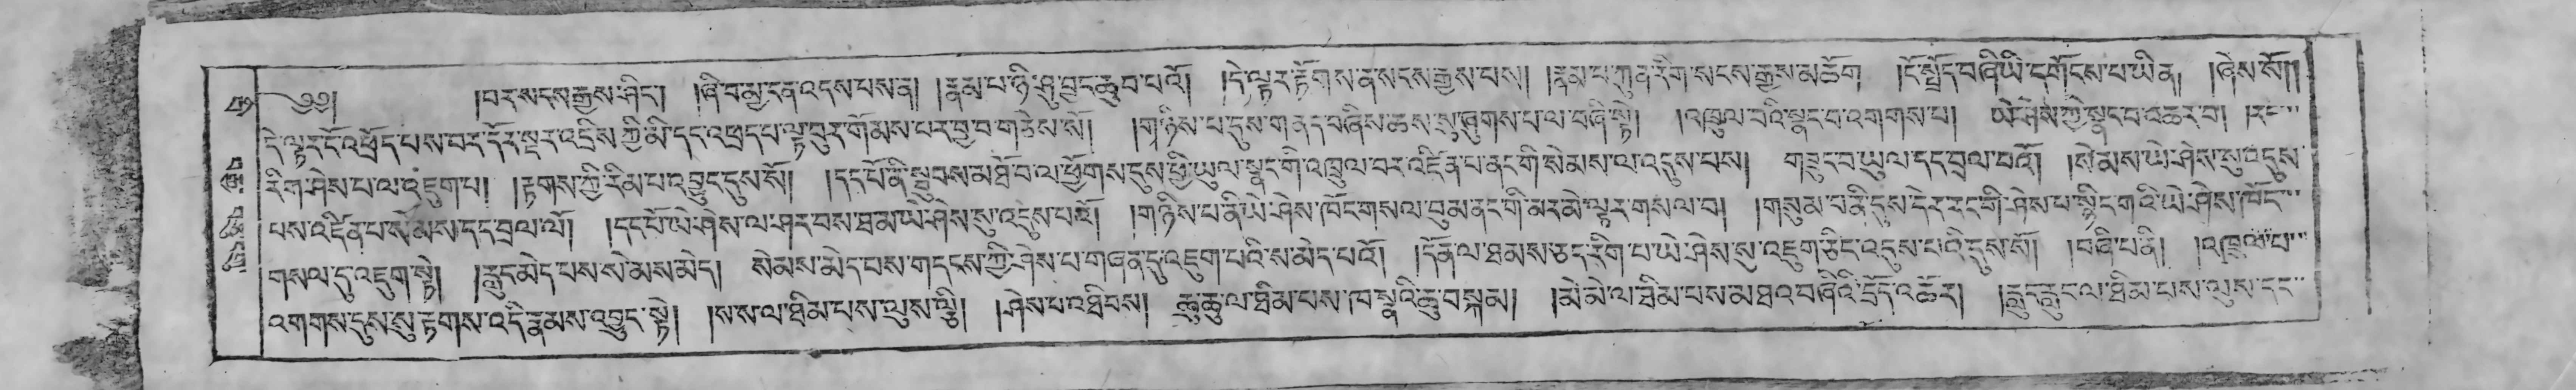 ༄༅། །བར་སངས་རྒྱས་ཤིང་། །ཞི་བམྱ་ངན་འདས་པས་ན། །རྣམ་པ་ཉི་ཤུ་བྱང་ཆུབ་པའོ། །དེ་ལྟར་རྟོགས་ན་སངས་རྒྱས་པས། །རྣམ་པ་ཀུན་རིག་སངས་རྒྱས་མཆོག །ངོ་སྤྲོད་བཞི་ཡི་དགོངས་པ་ཡིན། །ཞེས་སོ།།
དེ་ལྟར་ངོ་འཕྲོད་པས་བར་དོར་སྔར་འདྲིས་ཀྱི་མི་དང་འཕྲད་པ་ལྟ་བུར་གོམས་པར་བྱ་བ་གཅེས་སོ། །གཉིས་པ་དུས་གནད་བཞིས་ཆས་སུ་ཞུགས་པ་ལ་བཞི་སྟེ། །འཁྲུལ་བའི་སྣང་བ་འགགས་པ། ཡེ་ཤེས་ཀྱི་སྣང་བ་འཆར་བ། །རང་
རིག་ཤེས་པ་ལ་འཇུག་པ། །རྟགས་ཀྱི་རིམ་པ་འབྱུང་དུས་སོ། །དང་པོ་ནི་སྒྲུབས་མཐོ་བ་ལ་ཕྱོགས་དུས་ཕྱི་ཡུལ་སྣང་གི་འཁྲུལ་བར་འཛིན་པ་ནང་གི་སེམས་ལ་འདུས་པས། གཟུང་བ་ཡུལ་དང་བྲལ་བའོ། །སེམས་ཡེ་ཤེས་སུ་འདུས་
པས་འཛིན་པ་སེམས་དང་བྲལ་ལོ། །དང་པོ་ཡེ་ཤེས་ལ་ཤར་བས་ཐམ་ཡེ་ཤེས་སུ་འདུས་པའོ། །གཉིས་པ་ནི་ཡེ་ཤེས་ཁོང་གསལ་བུམ་ནང་གི་མར་མེ་ལྟར་གསལ་བ། །གསུམ་བ་ནི་དུས་དེར་རང་གི་ཤེས་པ་སྙིང་གའི་ཡེ་ཤེས་ཁོང་
གསལ་དུ་འཇུག་སྟེ། །རླུང་མེད་པས་སེམས་མེད། སེམས་མེད་པས་གདངས་ཀྱི་ཤེས་པ་གཞན་དུ་འཇུག་པའི་ས་མེད་པའོ། །དོན་ལ་ཐམས་ཅད་རིག་པ་ཡེ་ཤེས་སུ་འཇུག་ཅིང་འདུས་པའི་དུས་སོ། །བཞི་པ་ནི། །འཁྲུལ་པ་
འགགས་དུས་སུ་རྟགས་འདི་རྣམས་འབྱུང་སྟེ། །ས་ས་ལ་ཐིམ་པས་ལུས་ལྕི། །ཤེས་པ་འཐིབས། ཆུ་ཆུ་ལ་ཐིམ་པས་ཁ་སྣའི་ཆུ་བསྐམ། །མེ་མེ་ལ་ཐིམ་པས་མཐའ་བཞིའི་དྲོད་འཆོར། །རླུང་རླུང་ལ་ཐིམ་པས་ལུས་དང་